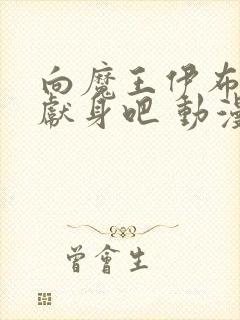 向魔王伊布
獻身吧 動漫
曾會生